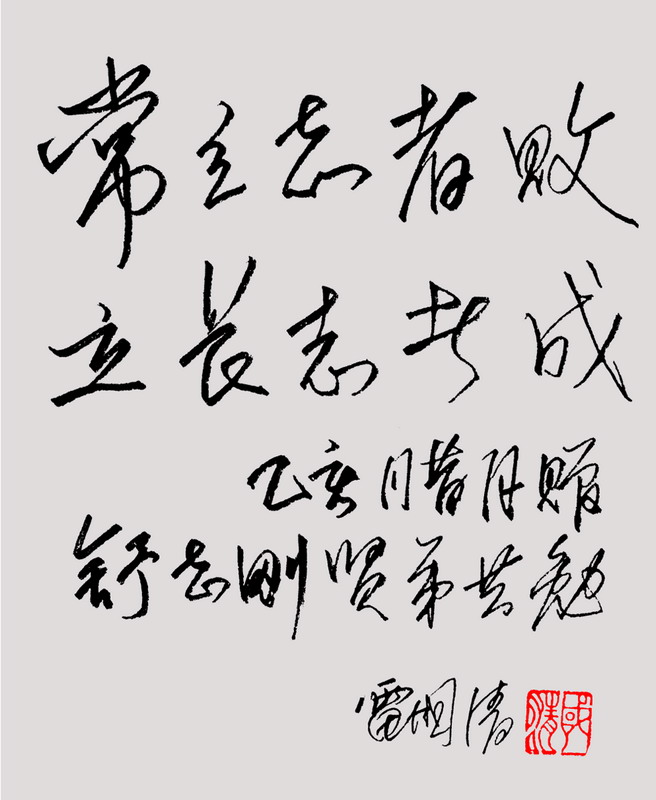 常立志者败
立长志者成
乙亥腊月赠
舒志刚贤弟共勉
雷国清
國清